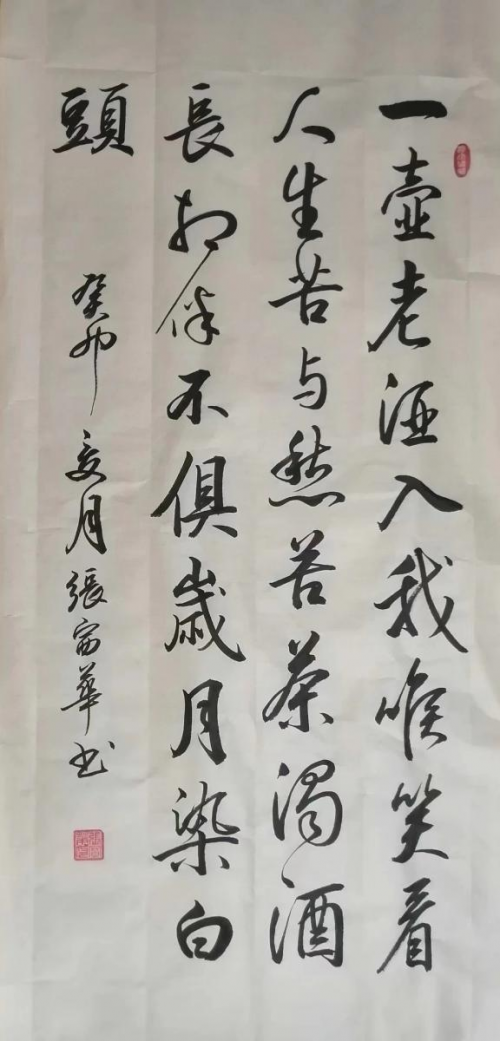 一壺老酒入我喉笑看
人生苦与愁苦茶濁酒
長相伴不俱歲月染白
頭
癸卯 亥月 張富華书